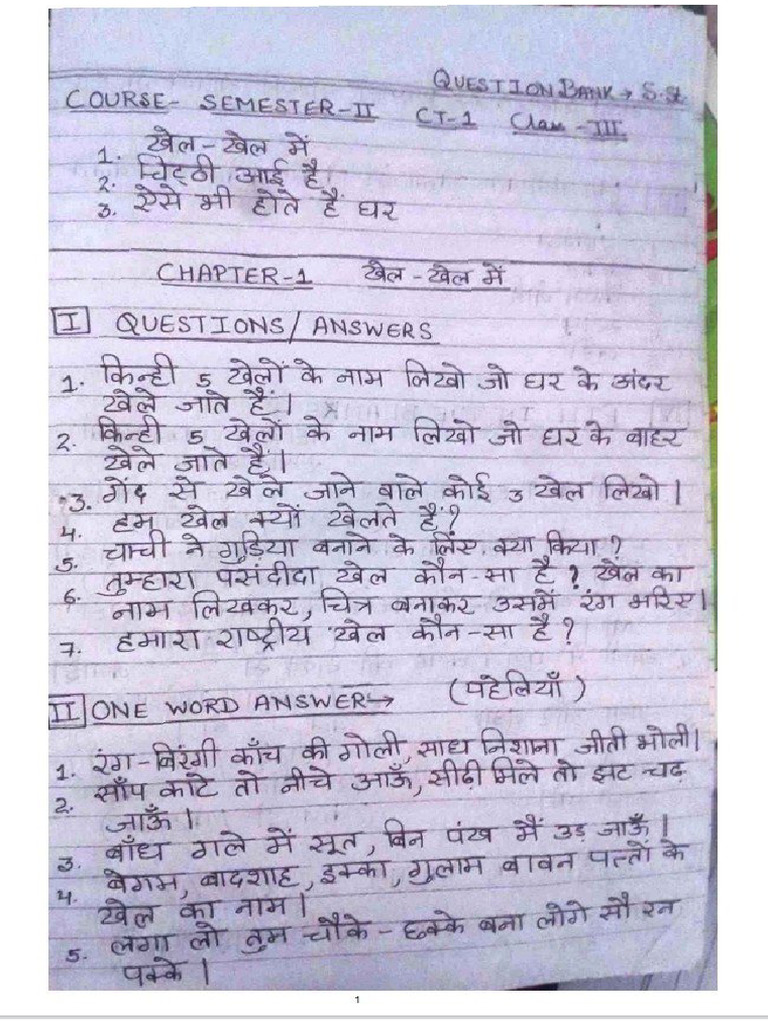 QUESTION BANK → S.St
COURSE- SEMESTER-II CT-1 Class -III
1. खेल-खेल में
2. चिट्ठी आई है
3. ऐसे भी होते हैं घर
CHAPTER-1 खेल-खेल में
I QUESTIONS/ANSWERS
1. किन्ही 5 खेलों के नाम लिखो जो घर के अंदर
खेले जाते हैं।
2. किन्ही 5 खेलों के नाम लिखो जो घर के बाहर
खेले जाते हैं।
3. गेंद से खेले जाने वाले कोई 3 खेल लिखो।
4. हम खेल क्यों खेलते हैं?
5. चाची ने गुड़िया बनाने के लिए क्या किया?
6. तुम्हारा पसंदीदा खेल कौन-सा है? खेल का
नाम लिखकर, चित्र बनाकर उसमें रंग भरिए।
7. हमारा राष्ट्रीय खेल कौन-सा है?
II ONE WORD ANSWER→ (पहेलियाँ)
1. रंग-बिरंगी काँच की गोली, साध निशाना जीती भोली।
2. साँप काटे तो नीचे आऊँ, सीढ़ी मिले तो झट चढ़
जाऊँ।
3. बाँध गले में सूत, बिन पंख मैं उड़ जाऊँ।
4. बेगम, बादशाह, इक्का, गुलाम बावन पत्तों के
खेल का नाम।
5. लगा लो तुम चौके-छक्के बना लोगे सौ रन
पक्के।
1